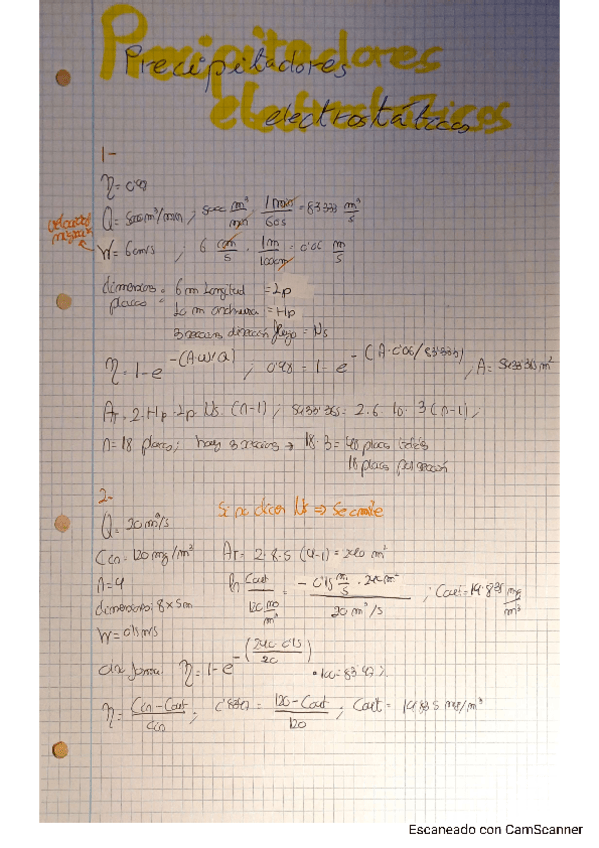 Precipitadores
electrostáticos
1-
η = 0'98
Q = 5000 m³/min ; 5000 m³/min · 1 min/60 s = 83'333 m³/s
velocidad
W = 6 cm/s ; 6 cm/s · 1 m/100 cm = 0'06 m/s
dimensiones placas = 6 m longitud = Lp
10 m anchura = Hp
3 secciones dirección flujo = Ns
η = 1 - e^-(A·w/Q) ; 0'98 = 1 - e^-(A·0'06/83'333) ; A = 5433'365 m²
A_T = 2·Hp·Lp·Ns·(n-1) ; 5433'365 = 2·6·10·3(n-1) ;
n = 18 placas ; hay 3 secciones → 18·3 = 48 placas totales
18 placas por sección
2-
Si no dicen Ns ⇒ se omite
Q = 20 m³/s
Cin = 120 mg/m³ A_T = 2·8·5 (4-1) = 240 m²
n = 4 ln Cout/(120 mg/m³) = -(0'15 m/s · 240 m²)/(20 m³/s) ; Cout = 19'835 mg/m³
dimensiones: 8 x 5 m
W = 0'15 m/s
otra forma: η = 1 - e^-(240·0'15/20) · 100 = 83'47 %
η = (Cin - Cout)/Cin ; 0'8347 = (120 - Cout)/120 ; Cout = 19'835 mg/m³
Escaneado con CamScanner